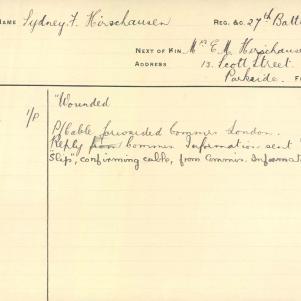 NAME Sydney F Hirschausen REG. &C. 27th Batt
NEXT OF KIN Mrs E. M. Hirschaus
ADDRESS 13. Scott Street.
Parkside.
1/P "Wounded
P/Cable forwarded Commis London.
Reply from Commis Information sent "
Slip", confirming cable, from Commis. Informat